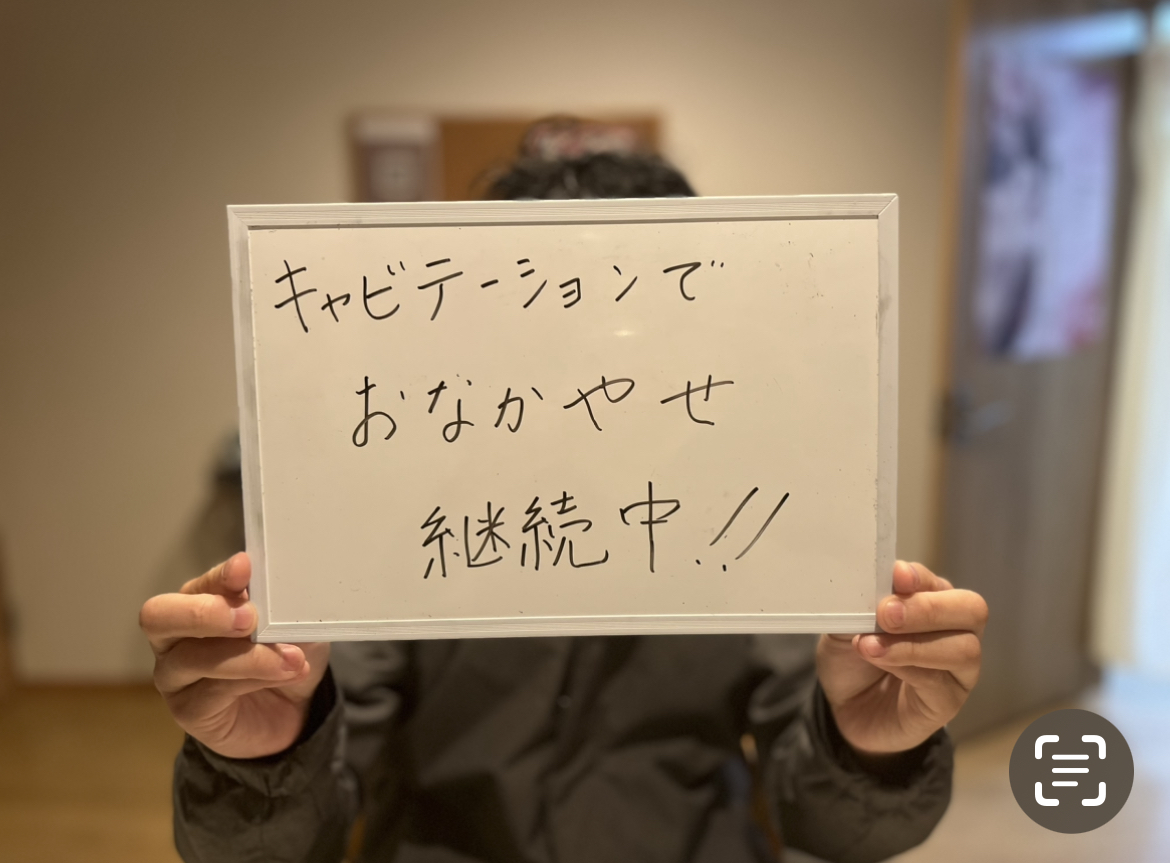 キャビテーションで
おなかやせ
継続中!!